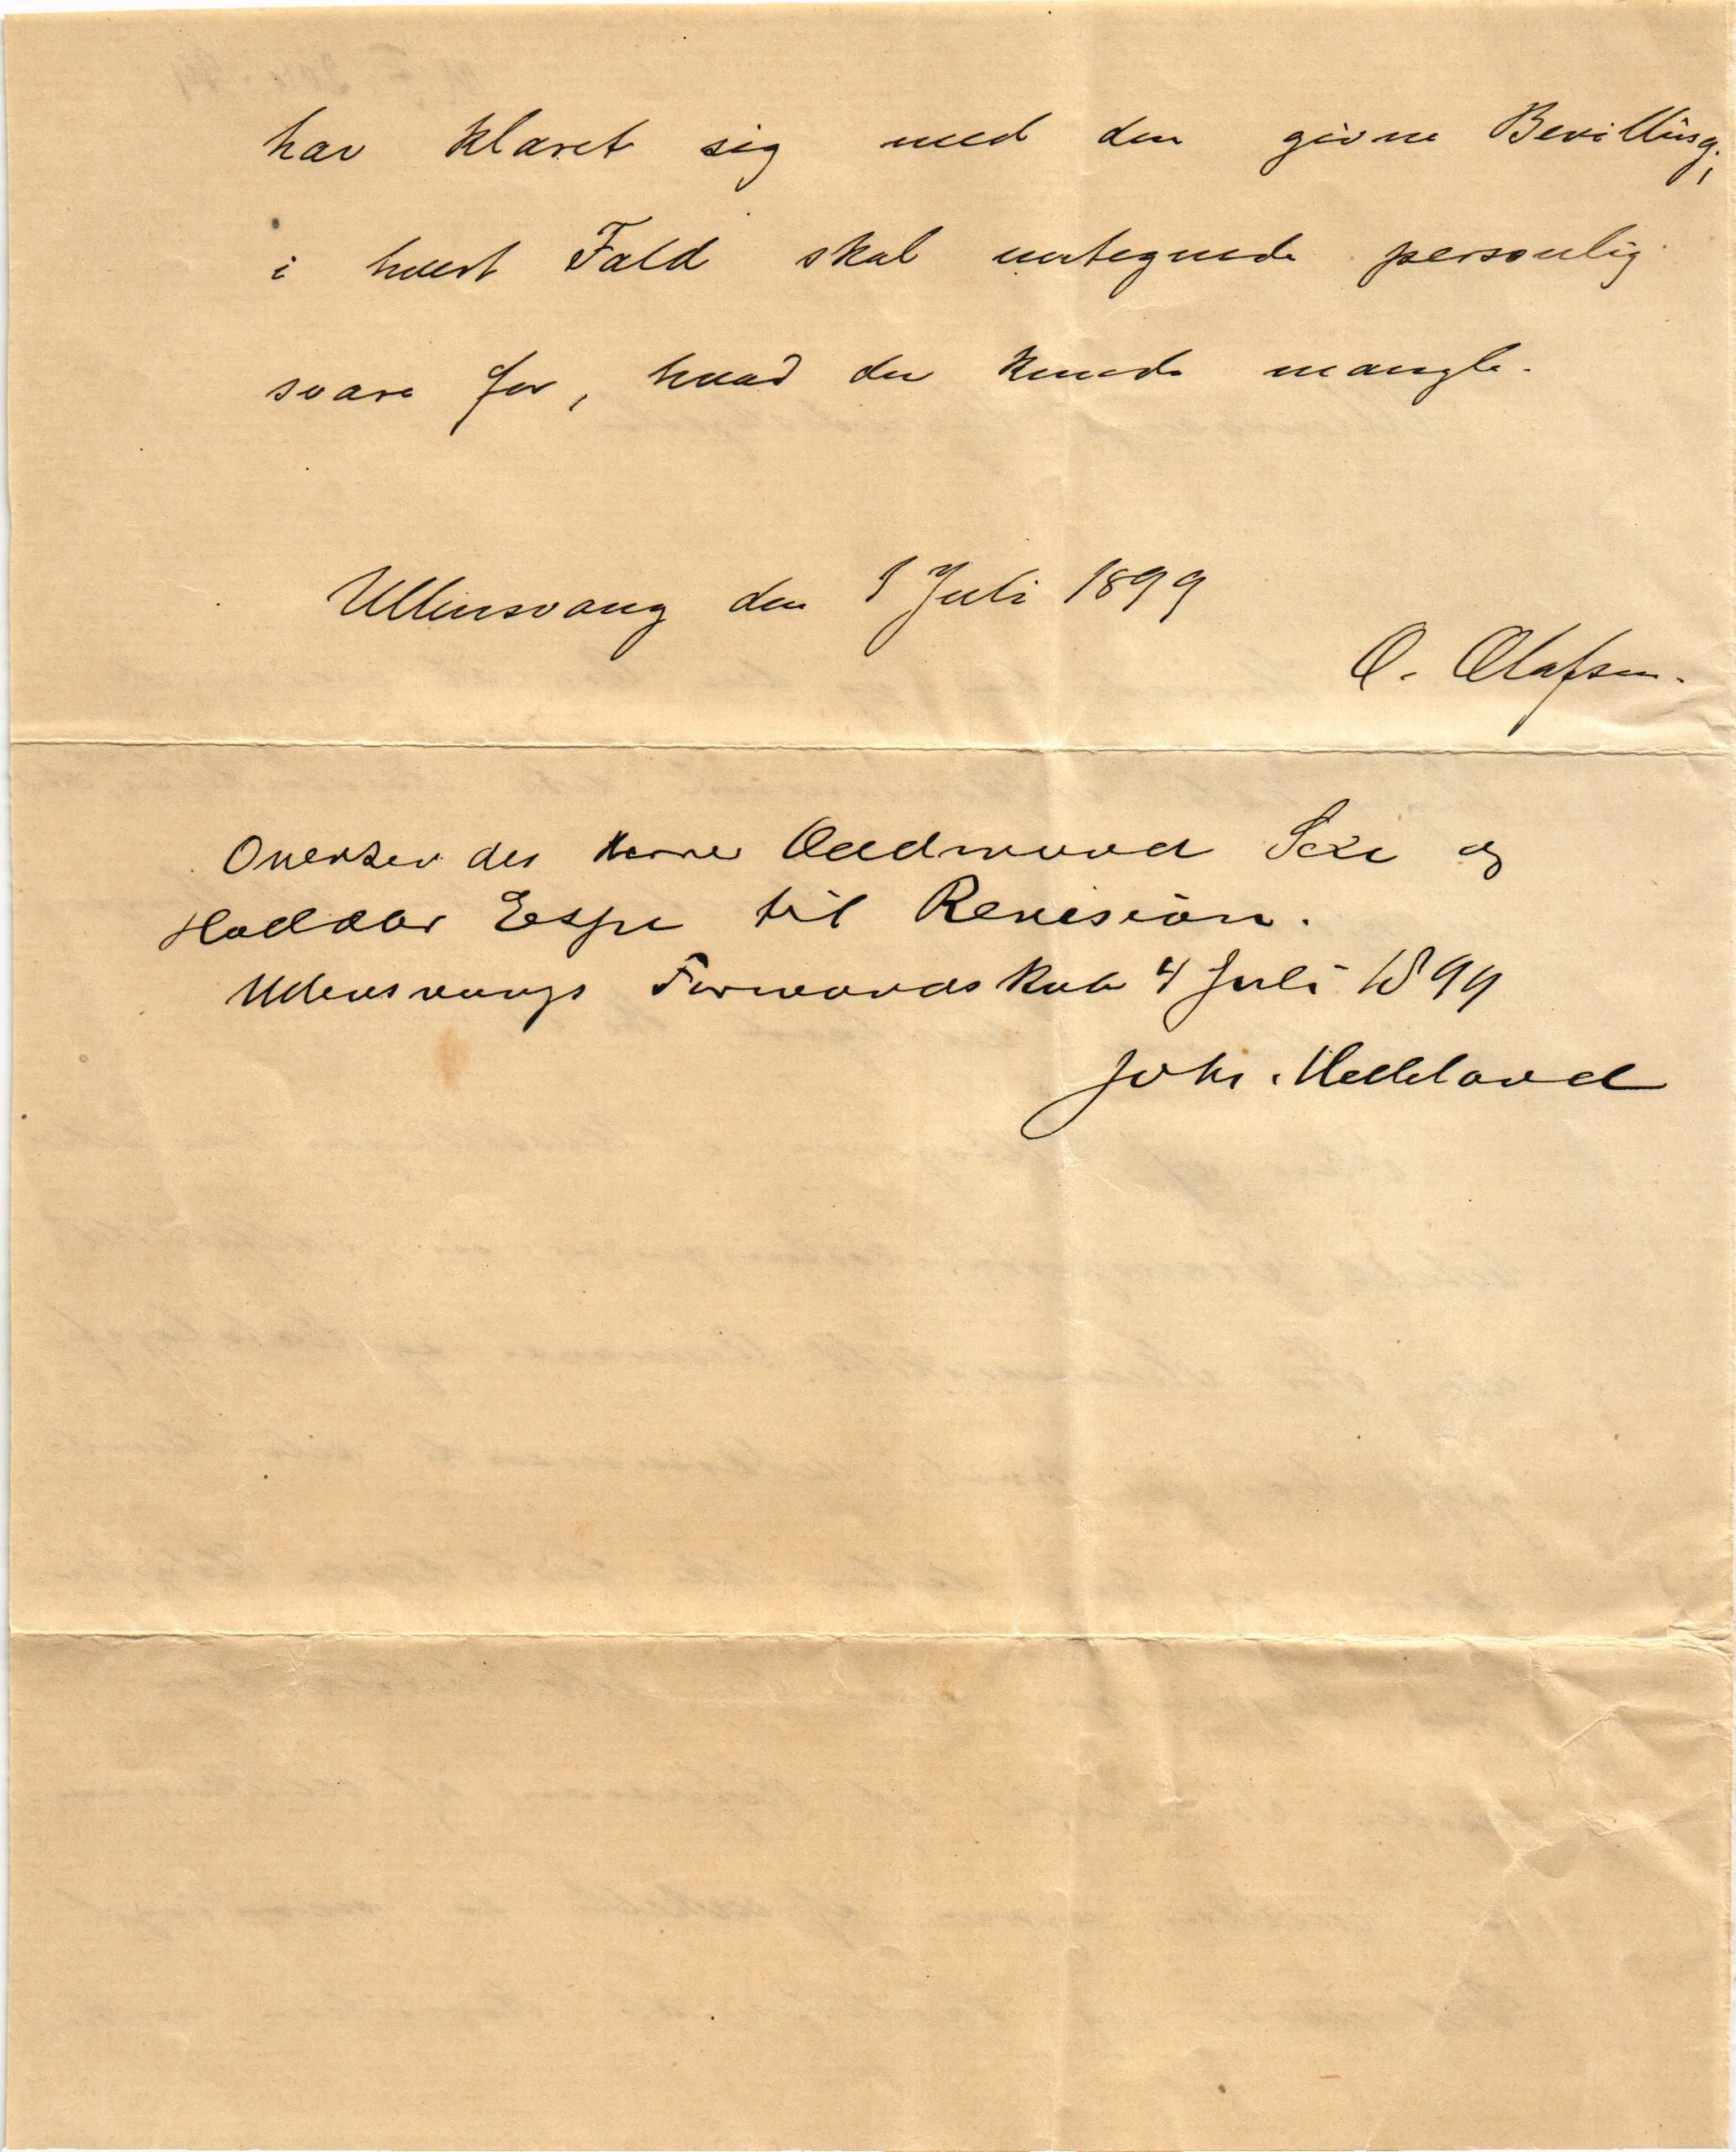 har klaret sig med den givne Bevilling;
i hvert Fald skal untegnede personlig
svare for, hvad der kunde mangle.
Ullensvang den 1 Juli 1899
O. Olafsen.
Oversendes Herrer Oddmund Sexe og
Haldor Espe til Revision.
Ullensvangs Formandskab 4 Juli 1899
Joh. Helleland